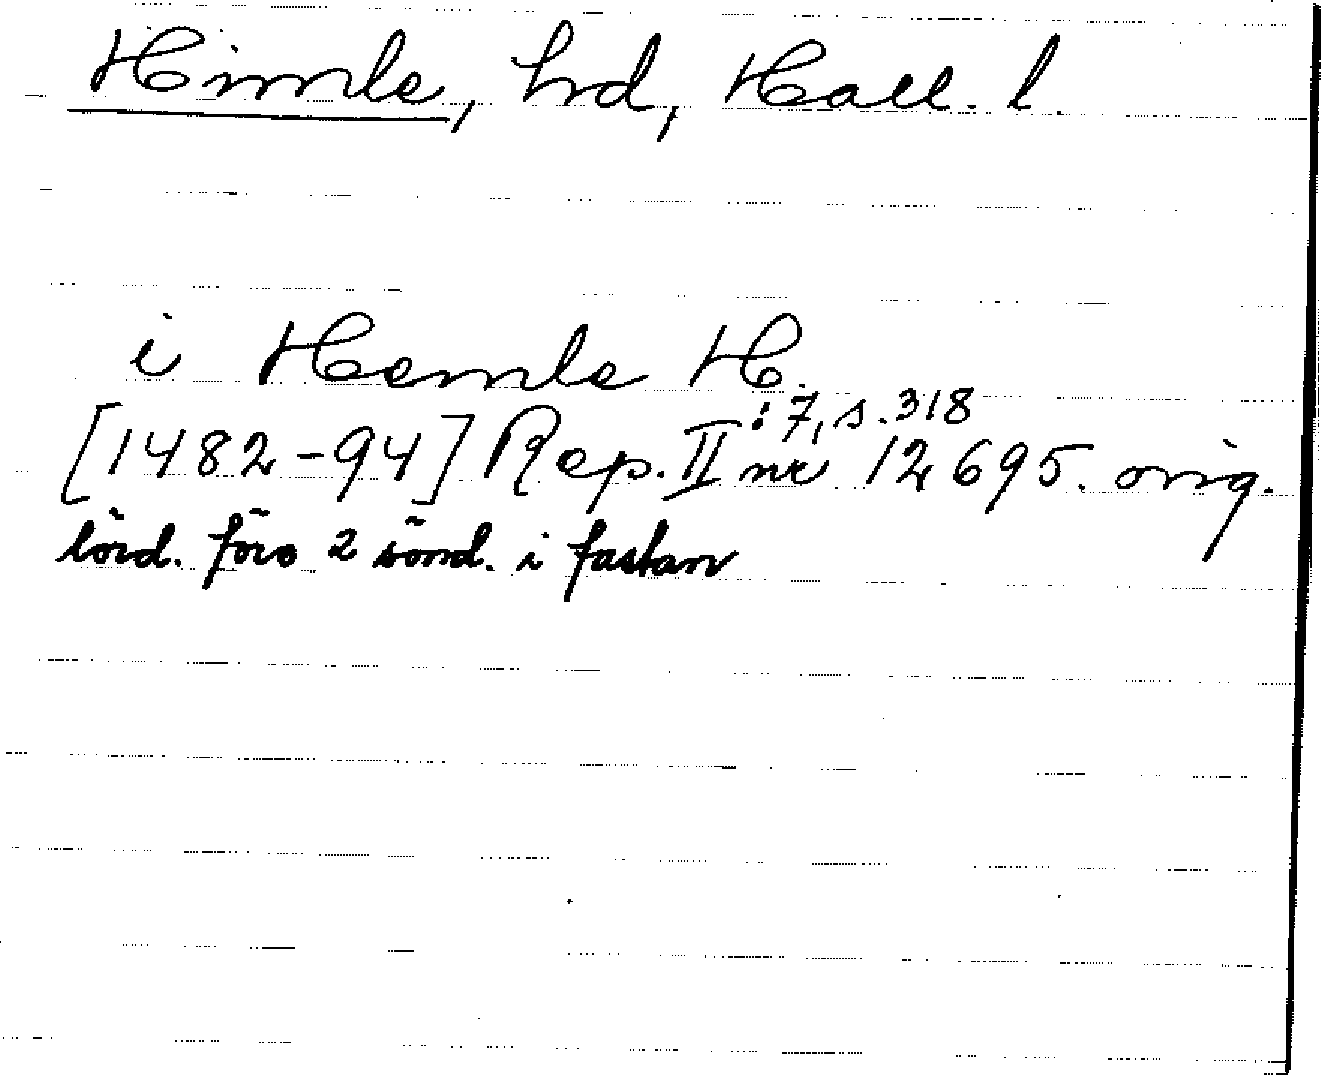 Himle, hrd, Hall. l.
i Hemle H.
[1482-94] Rep. II:7, s. 318 nr 12695. orig.
lörd. före 2 sönd. i fastan